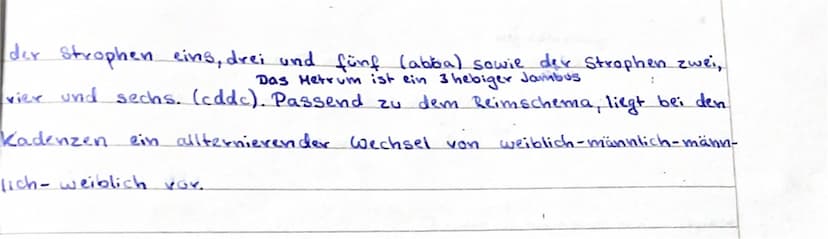 der Strophen eins, drei und fünf (abba) sowie der Strophen zwei,
Das Metrum ist ein 3hebiger Jambus
vier und sechs. (cddc). Passend zu dem Reimschema, liegt bei den
Kadenzen ein allternierender Wechsel von weiblich-männlich-männ-
lich-weiblich vor.